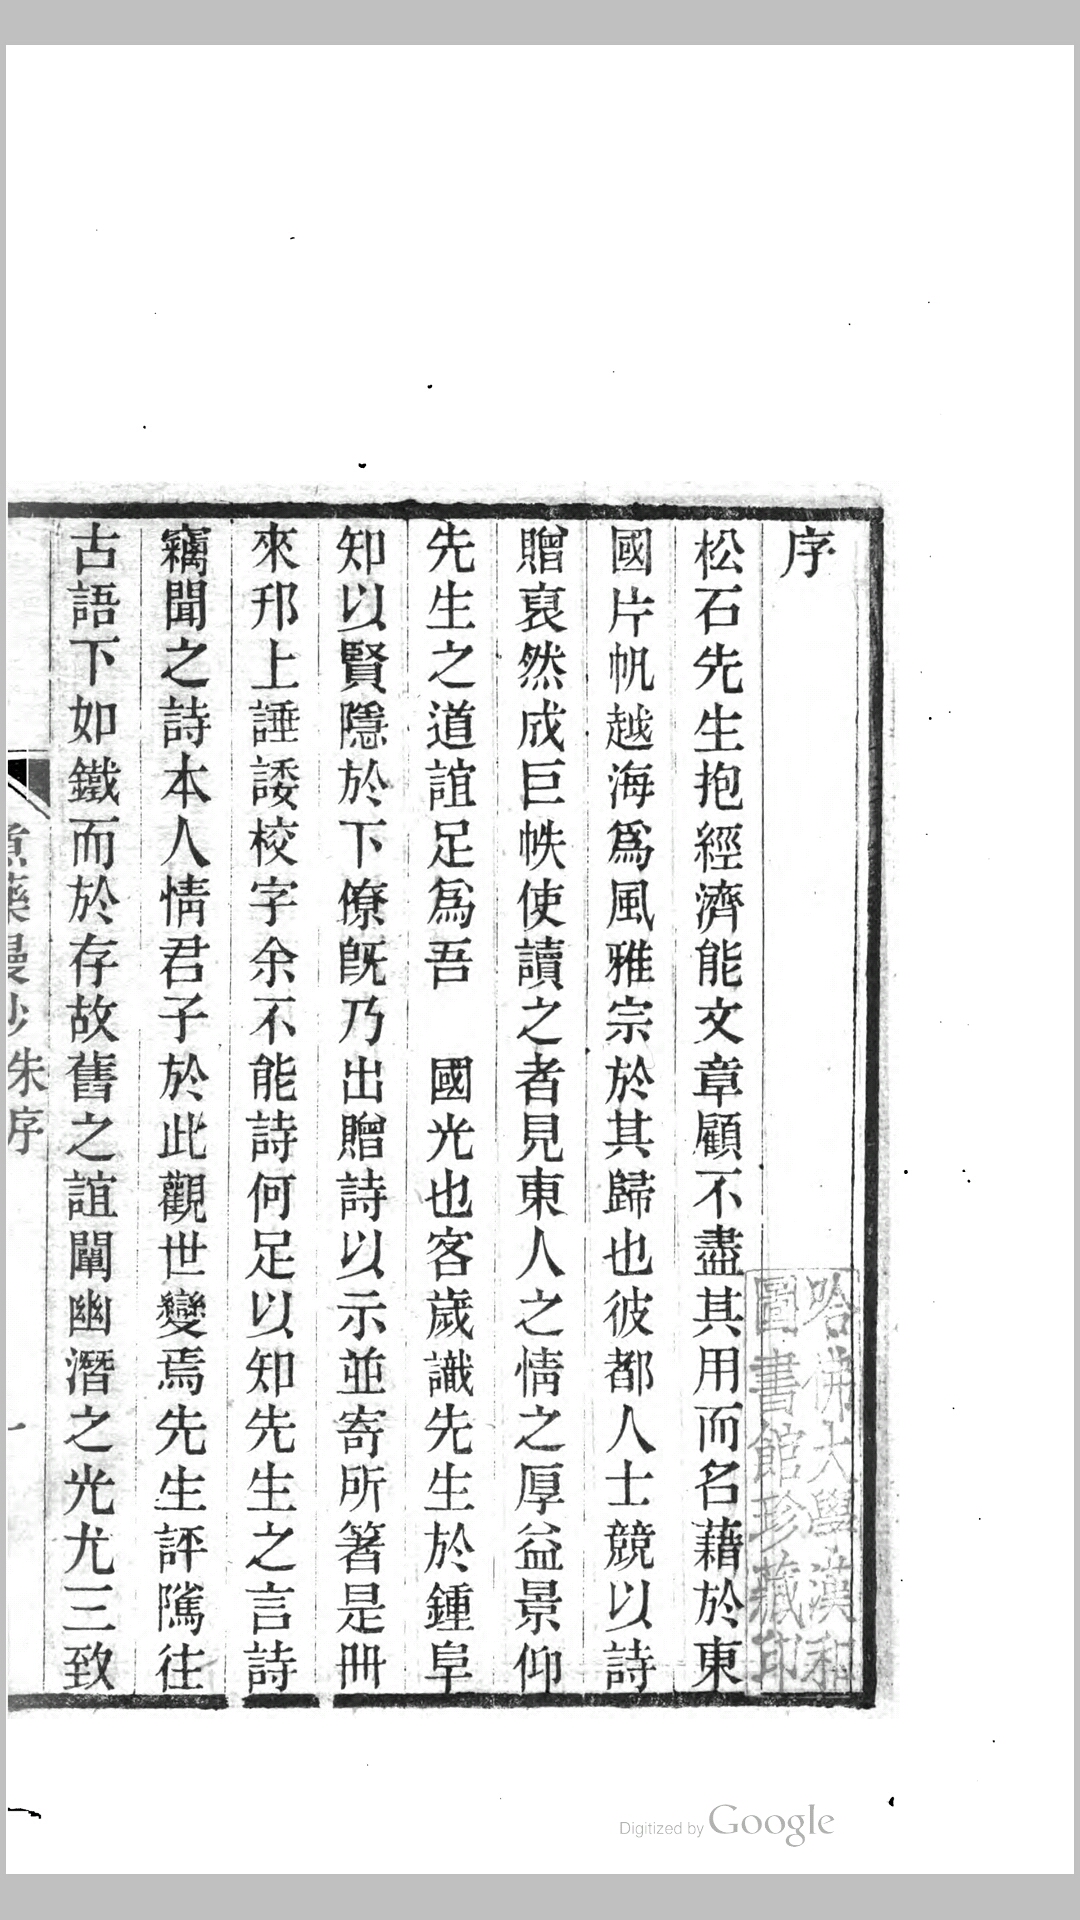 序
松石先生抱經濟能文章顧不盡其用而名藉於東
國片帆越海爲風雅宗於其歸也彼都人士競以詩
贈裒然成巨帙使讀之者見東人之情之厚益景仰
先生之道誼足爲吾　國光也客歲識先生於鍾阜
知以賢隱於下僚旣乃出贈詩以示並寄所箸是冊
來邘上諈諉校字余不能詩何足以知先生之言詩
竊聞之詩本人情君子於此觀世變焉先生評隲往
古語下如鐵而於存故舊之誼闡幽潛之光尤三致
漫鈔 朱序
一
哈佛大學漢和
圖書館珍藏印
Digitized by Google